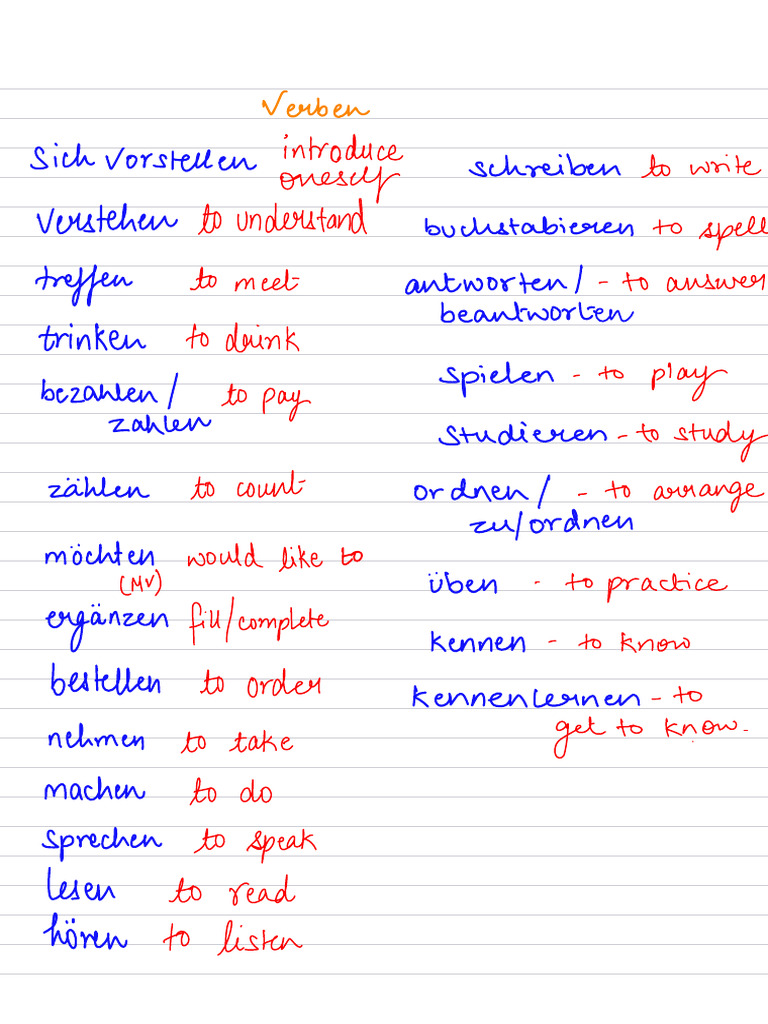 Verben
sich vorstellen introduce
oneself
verstehen to understand
treffen to meet
trinken to drink
bezahlen/ to pay
zahlen
zählen to count
möchten would like to
(MV)
ergänzen fill/complete
bestellen to order
nehmen to take
machen to do
sprechen to speak
lesen to read
hören to listen
schreiben to write
buchstabieren to spell
antworten/ - to answer
beantworten
spielen - to play
studieren - to study
ordnen/ - to arrange
zu/ordnen
üben - to practice
kennen - to know
kennenlernen - to
get to know.